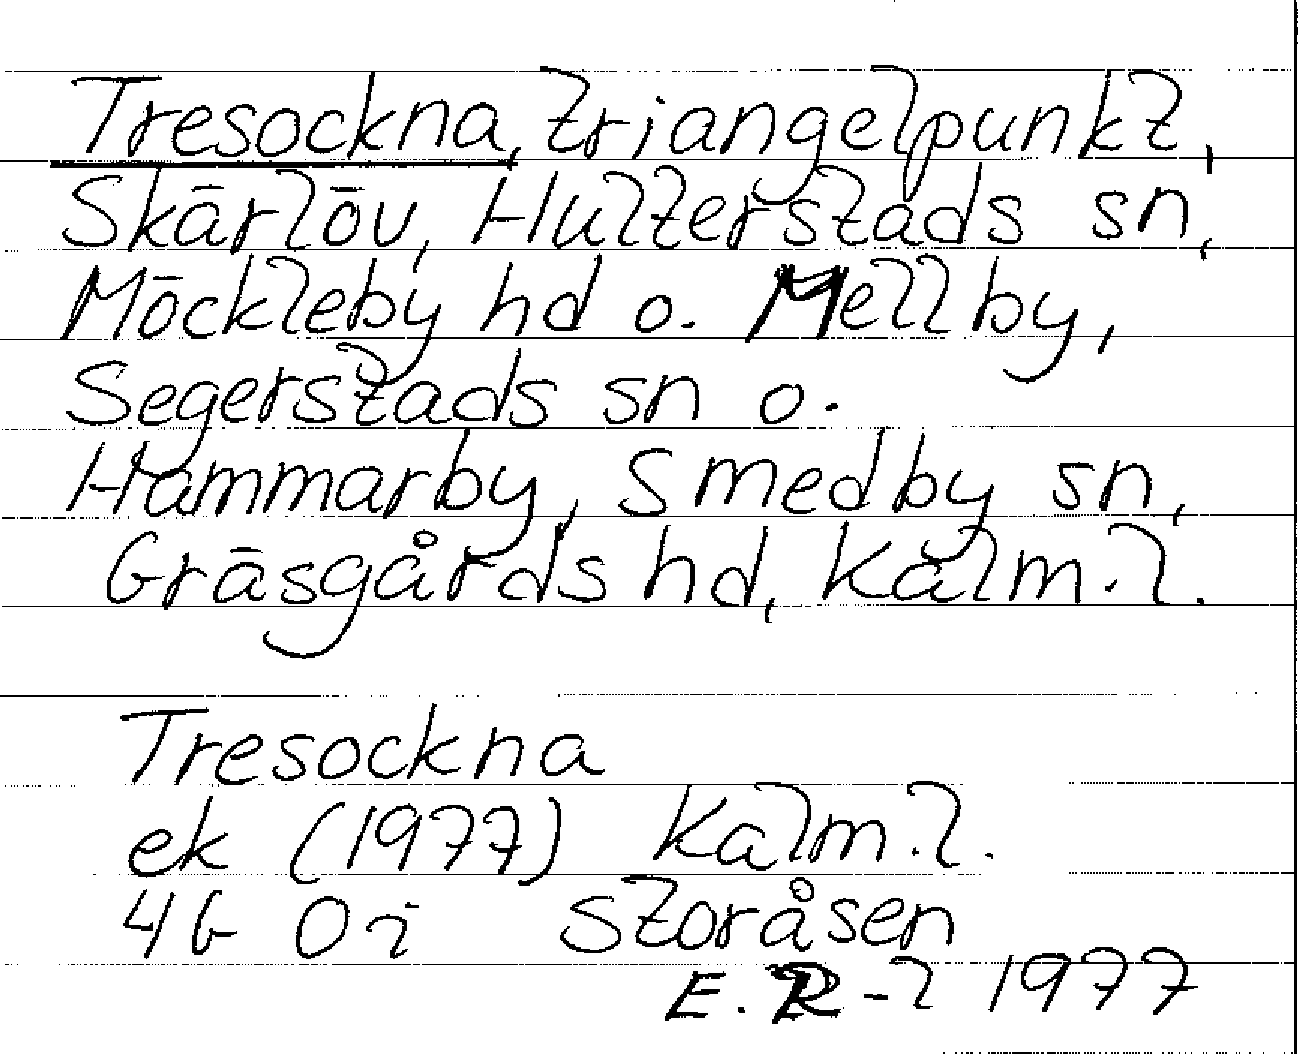 Tresockna, triangelpunkt,
Skärlöv, Hulterstads sn,
Möckleby hd o. Mellby,
Segerstads sn o.
Hammarby, Smedby sn,
Gräsgårds hd, Kalm. l.
Tresockna
ek (1977) Kalm. l.
4G 0i Storåsen
E. R-l 1977